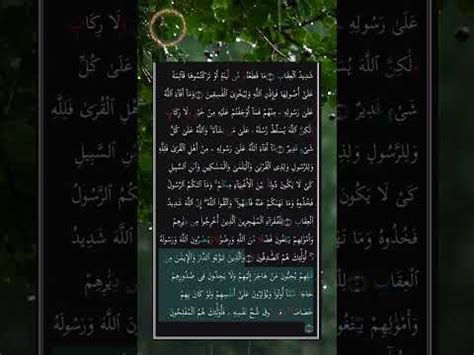 شَدِيدُ ٱلْعِقَابِ مَا قَطَعْتُم مِّن لِّينَةٍ أَوْ تَرَكْتُمُوهَا قَآئِمَةً
عَلَىٰٓ أُصُولِهَا فَبِإِذْنِ ٱللَّهِ وَلِيُخْزِىَ ٱلْفَٰسِقِينَ وَمَآ أَفَآءَ ٱللَّهُ
عَلَىٰ رَسُولِهِۦ مِنْهُمْ فَمَآ أَوْجَفْتُمْ عَلَيْهِ مِنْ خَيْلٍ وَلَا رِكَابٍ
وَلَٰكِنَّ ٱللَّهَ يُسَلِّطُ رُسُلَهُۥ عَلَىٰ مَن يَشَآءُ وَٱللَّهُ عَلَىٰ كُلِّ
شَىْءٍ قَدِيرٌ مَّآ أَفَآءَ ٱللَّهُ عَلَىٰ رَسُولِهِۦ مِنْ أَهْلِ ٱلْقُرَىٰ فَلِلَّهِ
وَلِلرَّسُولِ وَلِذِى ٱلْقُرْبَىٰ وَٱلْيَتَٰمَىٰ وَٱلْمَسَٰكِينِ وَٱبْنِ ٱلسَّبِيلِ
كَىْ لَا يَكُونَ دُولَةًۢ بَيْنَ ٱلْأَغْنِيَآءِ مِنكُمْ وَمَآ ءَاتَىٰكُمُ ٱلرَّسُولُ
فَخُذُوهُ وَمَا نَهَىٰكُمْ عَنْهُ فَٱنتَهُوا۟ وَٱتَّقُوا۟ ٱللَّهَ إِنَّ ٱللَّهَ شَدِيدُ
ٱلْعِقَابِ لِلْفُقَرَآءِ ٱلْمُهَٰجِرِينَ ٱلَّذِينَ أُخْرِجُوا۟ مِن دِيَٰرِهِمْ
وَأَمْوَٰلِهِمْ يَبْتَغُونَ فَضْلًا مِّنَ ٱللَّهِ وَرِضْوَٰنًا وَيَنصُرُونَ ٱللَّهَ وَرَسُولَهُۥٓ
أُو۟لَٰٓئِكَ هُمُ ٱلصَّٰدِقُونَ وَٱلَّذِينَ تَبَوَّءُو ٱلدَّارَ وَٱلْإِيمَٰنَ مِن
قَبْلِهِمْ يُحِبُّونَ مَنْ هَاجَرَ إِلَيْهِمْ وَلَا يَجِدُونَ فِى صُدُورِهِمْ
حَاجَةً مِّمَّآ أُوتُوا۟ وَيُؤْثِرُونَ عَلَىٰٓ أَنفُسِهِمْ وَلَوْ كَانَ بِهِمْ
خَصَاصَةٌ وَمَن يُوقَ شُحَّ نَفْسِهِۦ فَأُو۟لَٰٓئِكَ هُمُ ٱلْمُفْلِحُونَ